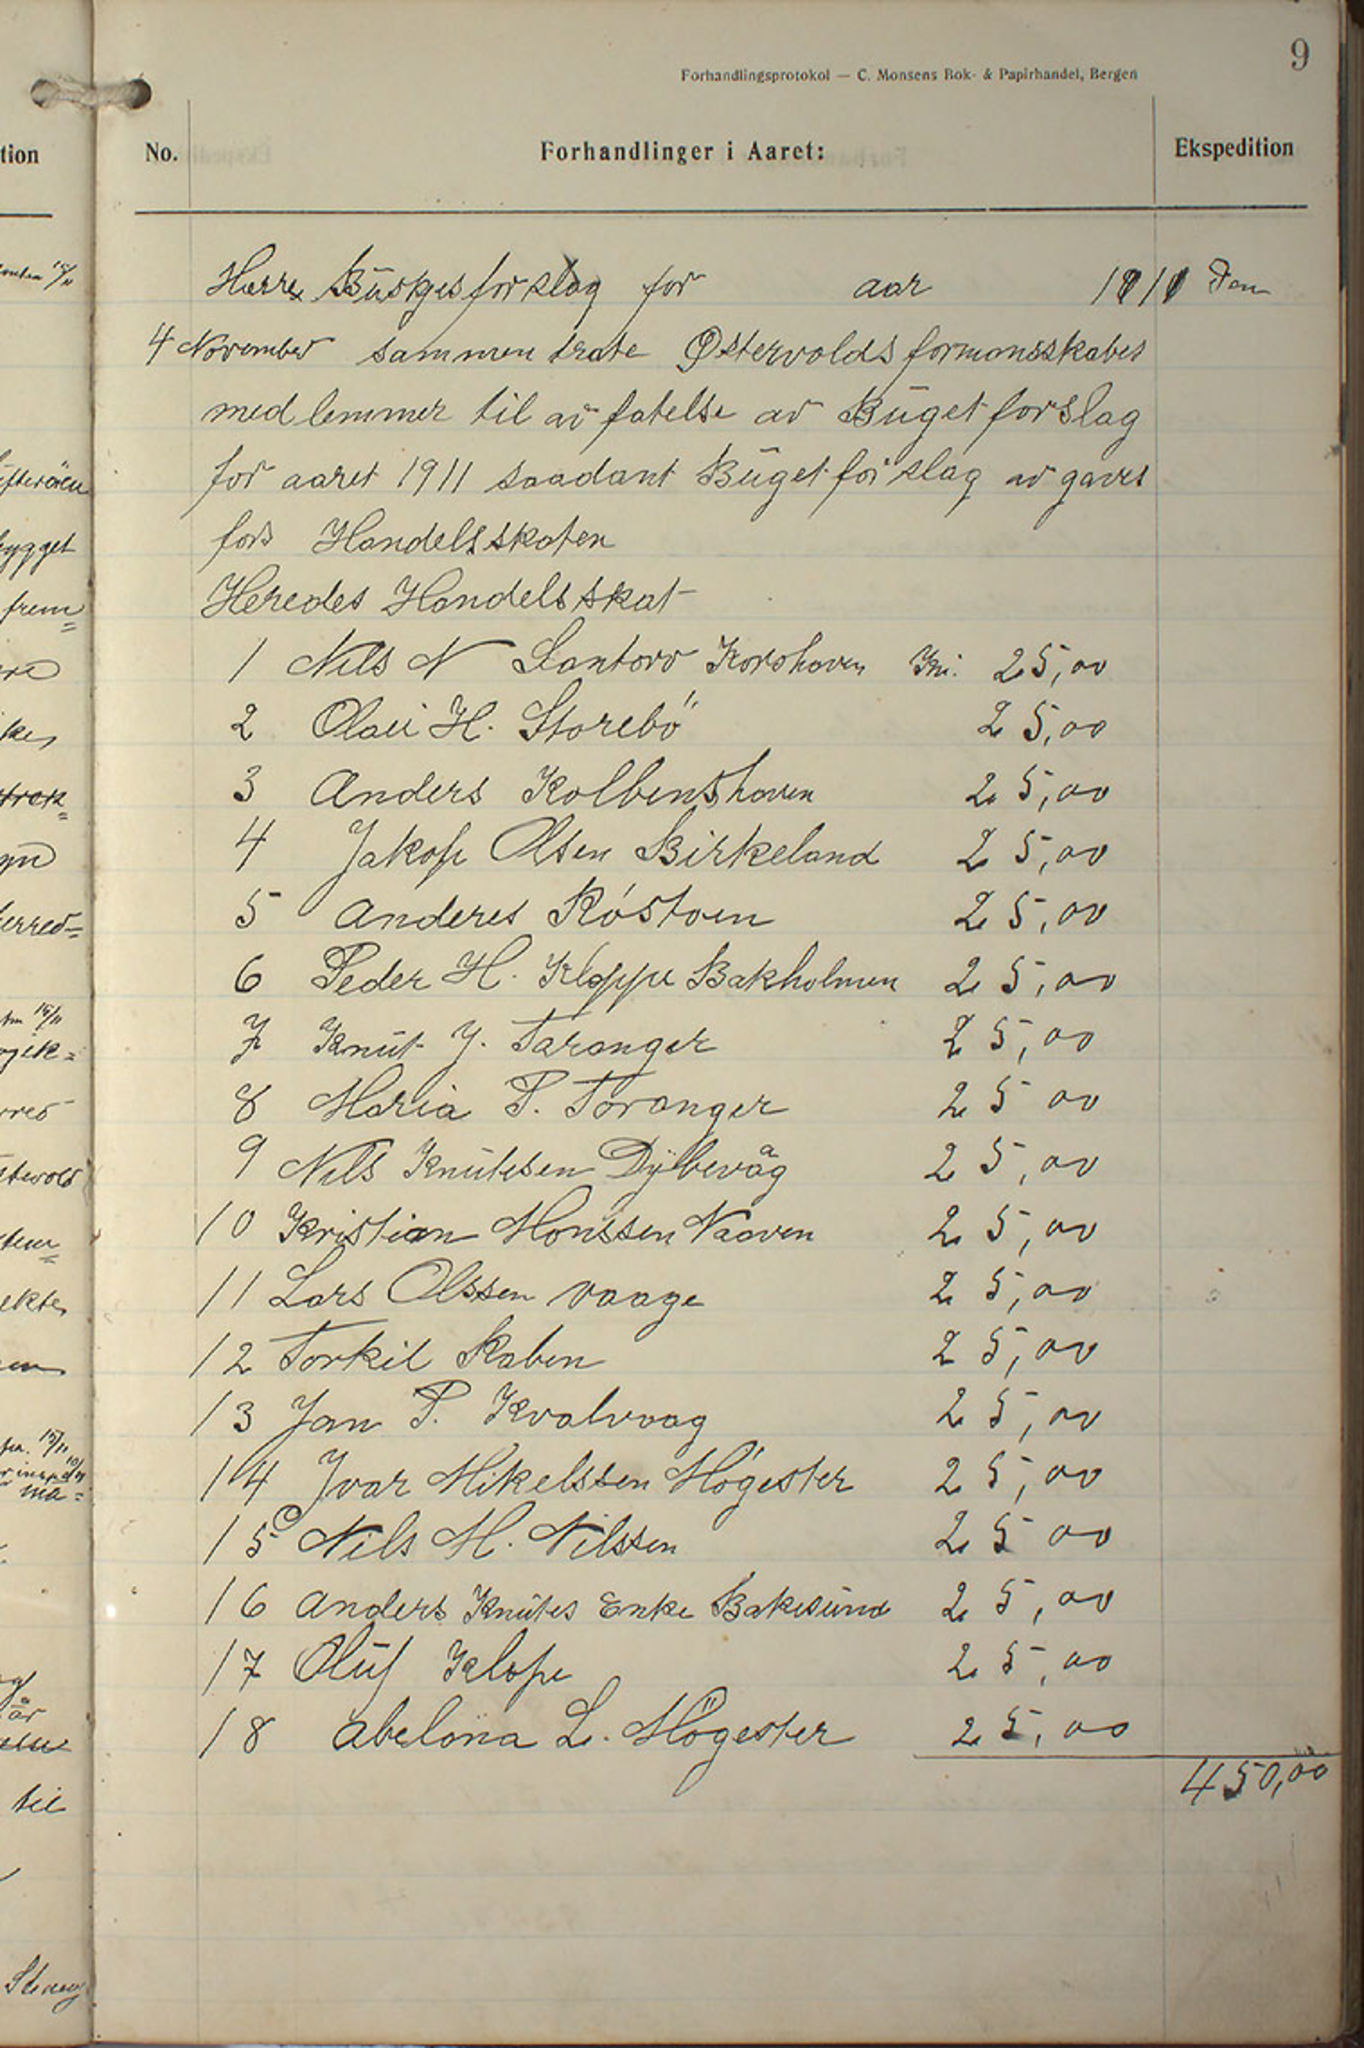 9
Forhandlingsprotokol — C. Monsens Bok- & Papirhandel, Bergen
tion
No. Forhandlinger i Aaret: Ekspedition
Herre Büsgjesforslag for aar 1911 Den
4 November sammentrate Østervolds formonsskabes
medlemmer til av fatelse av Büget forslag
for aaret 1911 saadant Büget forslag av gaves
fors Handelsskaten
Heredes Handelsskat
1 Nils N Santorv Korshaven Kr. 25,00
2 Olai H. Storebö 25,00
3 Anders Kolbenshaven 25,00
4 Jakop Olsen Birkeland 25,00
5 Anderes Róstoen 25,00
6 Peder H. Kloppe Bakholmen 25,00
7 Knüt J. Taranger 25,00
8 Maria P. Toranger 25 00
9 Nils Knütesen Dÿbevåg 25,00
10 Kristian Monssen Naaven 25,00
11 Lars Olssen vaage 25,00
12 Torkil Skaben 25,00
13 Jan P. Kvalvaag 25,00
14 Ivar Mikelssen Høgester 25,00
15 Nils M. Nilssen 25 00
16 Anders Knütes Enke Bakesünd 25,00
17 Olüf Klope 25,00
18 Abelona L. Högester 25,00
450,00
ygget
frem=
til